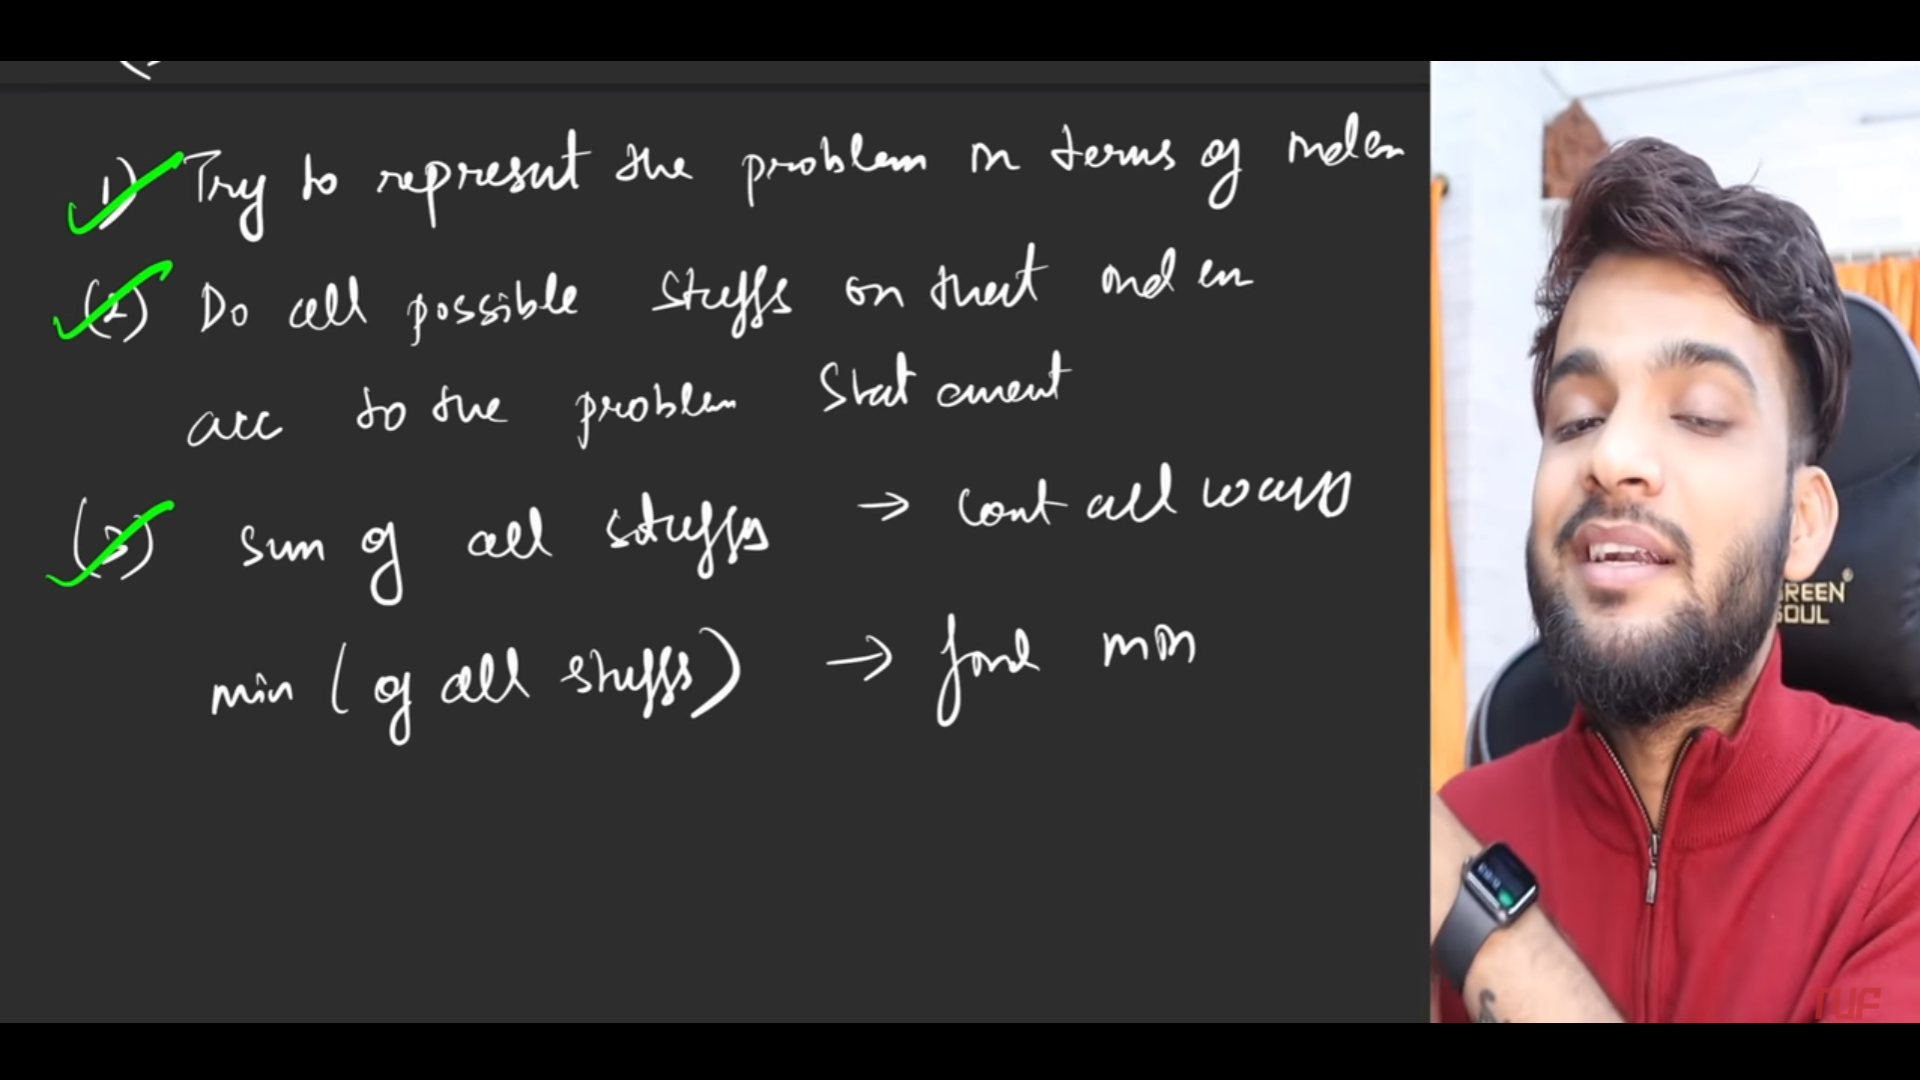 1) Try to represent the problem in terms of index
(2) Do all possible stuffs on that index
acc to the problem statement
(3) sum of all stuffs → count all ways
min (of all stuffs) → find min
GREEN
SOUL
TUF